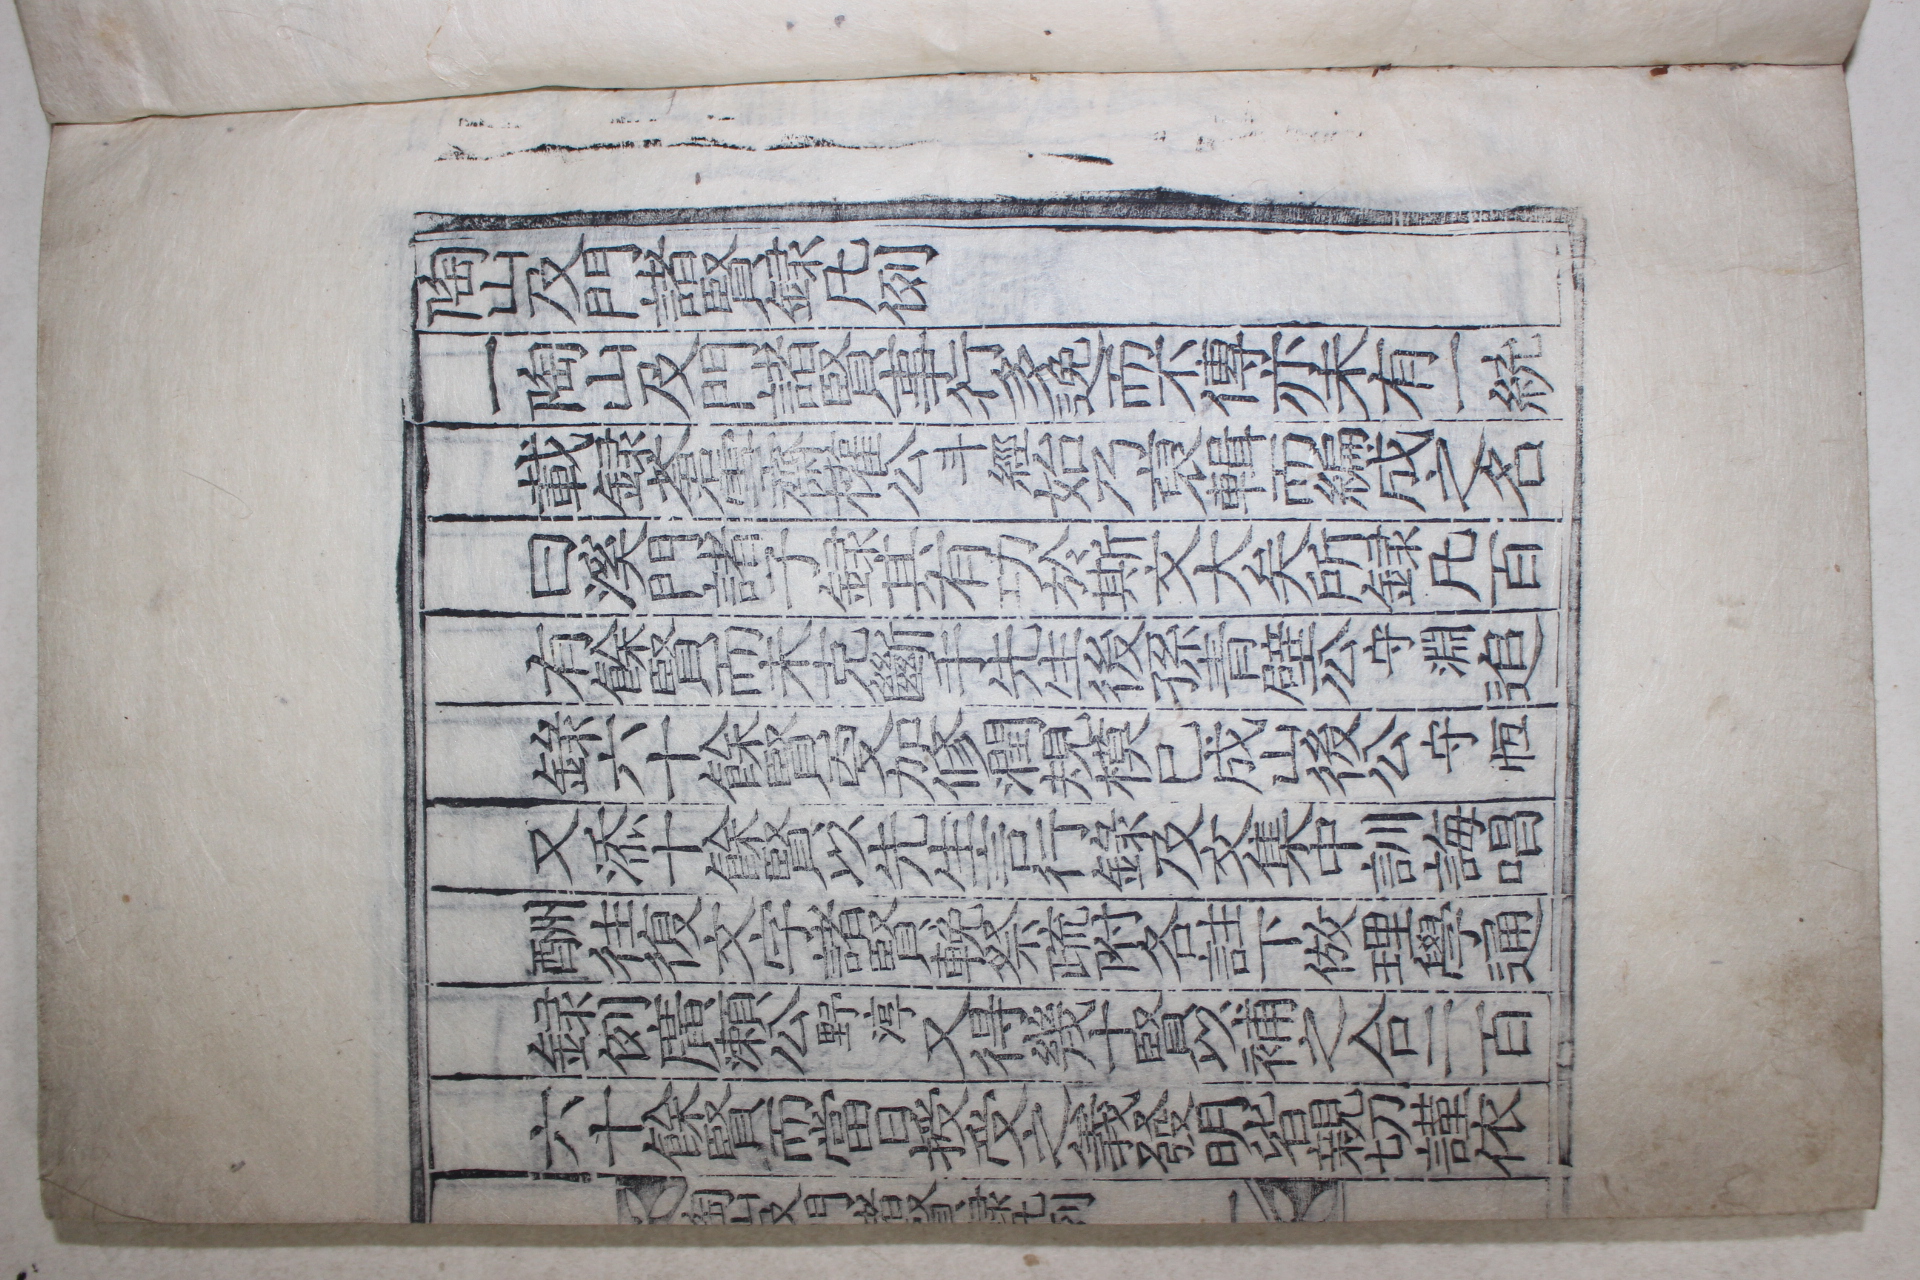 陶山及門諸賢錄凡例
一陶山及門諸賢事行多逸而不傳亦未有一統
載錄蒼雪齋權公斗經始乃裒輯而編成之名
曰溪門諸子錄其有功於斯文大矣所錄凡百
有餘賢而未克斷手先生後孫靑壁公守淵追
錄六十餘賢更加修潤規模已成山後公守恒
又添十餘賢以先生言行錄及文集中訓誨唱
酬往復文字諸賢輓祭疏附各註下倣理學通
錄例廣瀨公野淳又得幾十賢以補之合二百
六十餘賢而當日授受之義發明皆親切謹依
陶山及門諸賢錄凡例 一